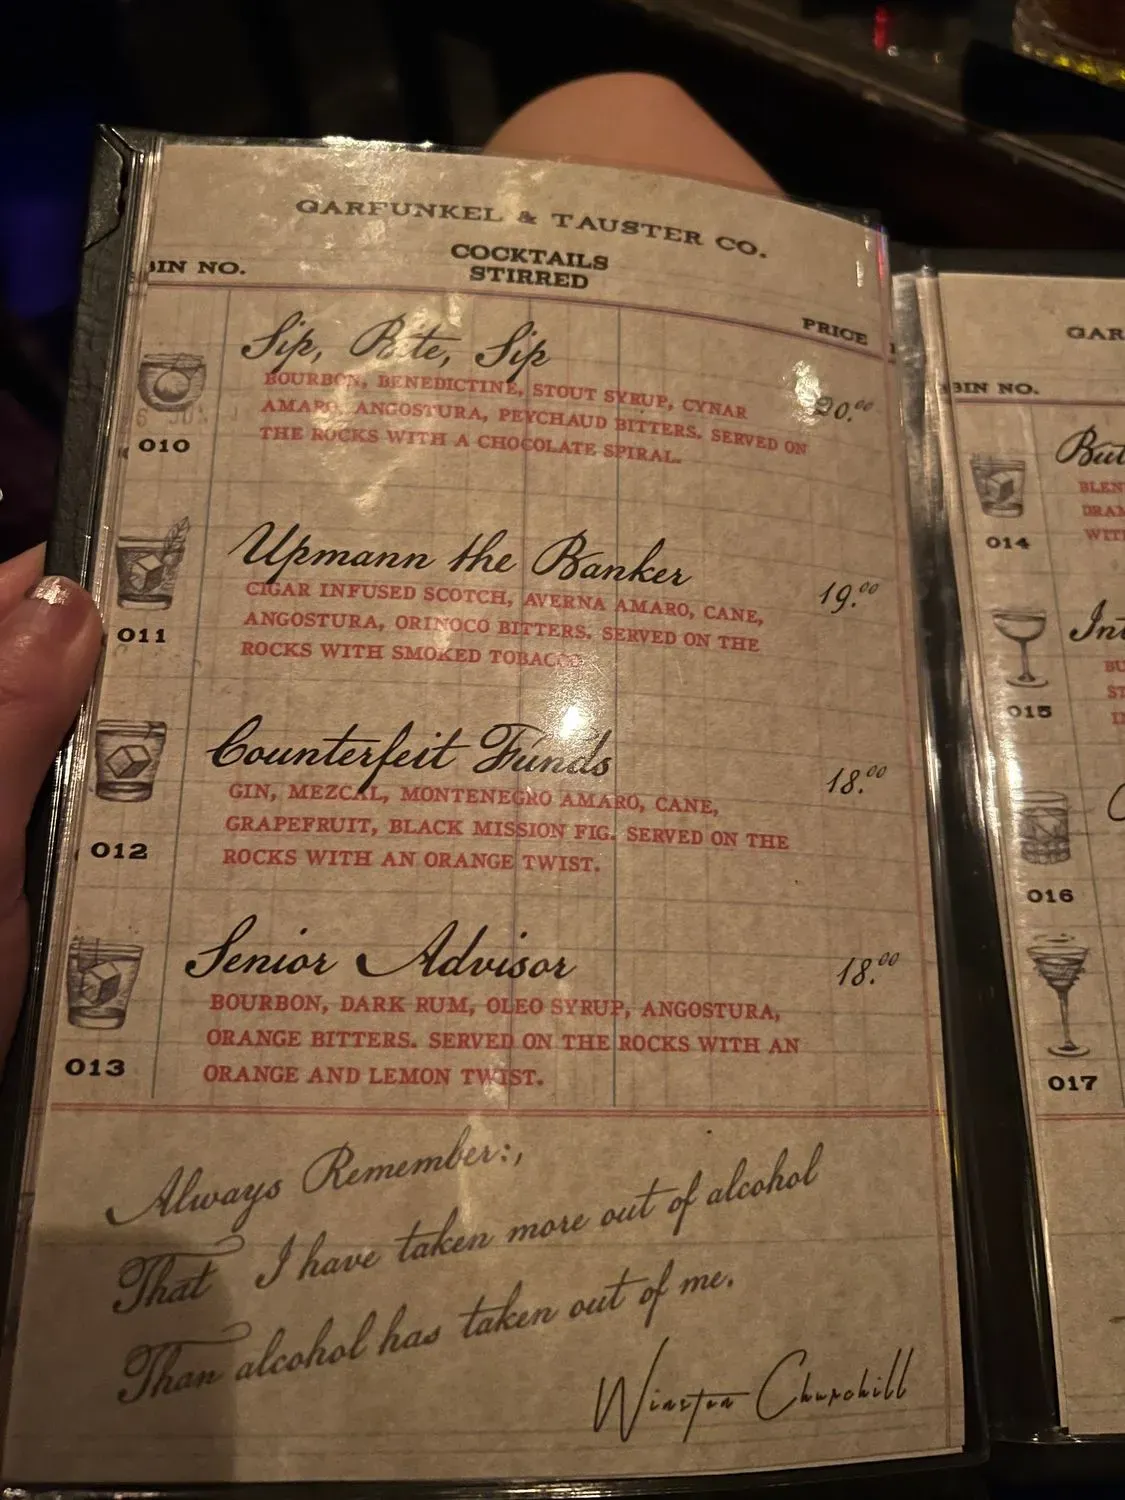 GARFUNKEL & TAUSTER CO.
COCKTAILS
STIRRED
BIN NO.
PRICE
Sip, Bite, Sip
BOURBON, BENEDICTINE, STOUT SYRUP, CYNAR
AMARO, ANGOSTURA, PEYCHAUD BITTERS. SERVED ON
THE ROCKS WITH A CHOCOLATE SPIRAL.
20.00
010
Upmann the Banker
CIGAR INFUSED SCOTCH, AVERNA AMARO, CANE,
ANGOSTURA, ORINOCO BITTERS. SERVED ON THE
ROCKS WITH SMOKED TOBACCO
19.00
011
Counterfeit Funds
GIN, MEZCAL, MONTENEGRO AMARO, CANE,
GRAPEFRUIT, BLACK MISSION FIG. SERVED ON THE
ROCKS WITH AN ORANGE TWIST.
18.00
012
Senior Advisor
BOURBON, DARK RUM, OLEO SYRUP, ANGOSTURA,
ORANGE BITTERS. SERVED ON THE ROCKS WITH AN
ORANGE AND LEMON TWIST.
18.00
013
Always Remember:,
That I have taken more out of alcohol
Than alcohol has taken out of me.
Winston Churchill
GAR
BIN NO.
But
BLEN
DRAM
WITH
014
Int
BU
ST
015
016
017